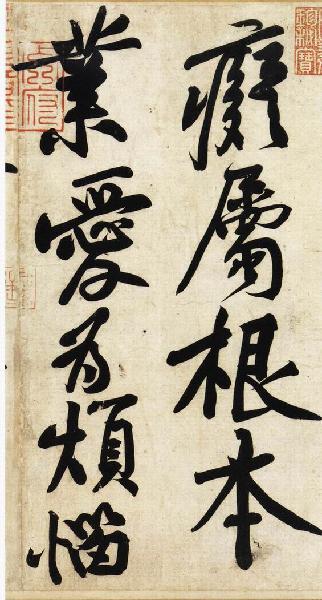 癡屬根本
業愛為煩惱